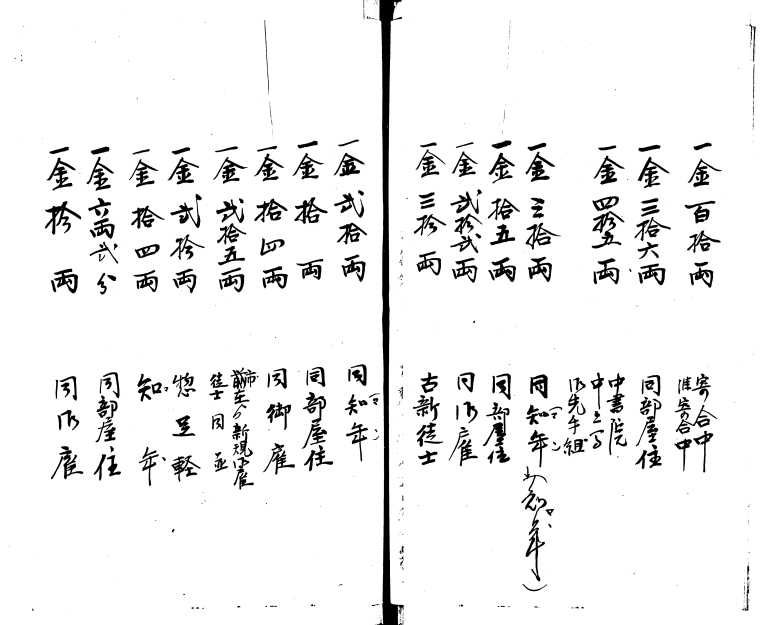 一金百拾両 寄合中
準寄合中
一金三拾六両 同部屋住
一金四拾五両 中書院
中之間
御先手組
一金三拾両 同知年(マヽ)(知年)
一金拾五両 同部屋住
一金弐拾弐両 同御雇
一金三拾両 古新徒士
一金弐拾両 同知年(マヽ)
一金拾両 同部屋住
一金拾四両 同御雇
一金弐拾五両 新規御雇
徒士同並
一金弐拾両 惣足軽
一金拾四両 知年
一金六両弐分 同部屋住
一金拾両 同御雇